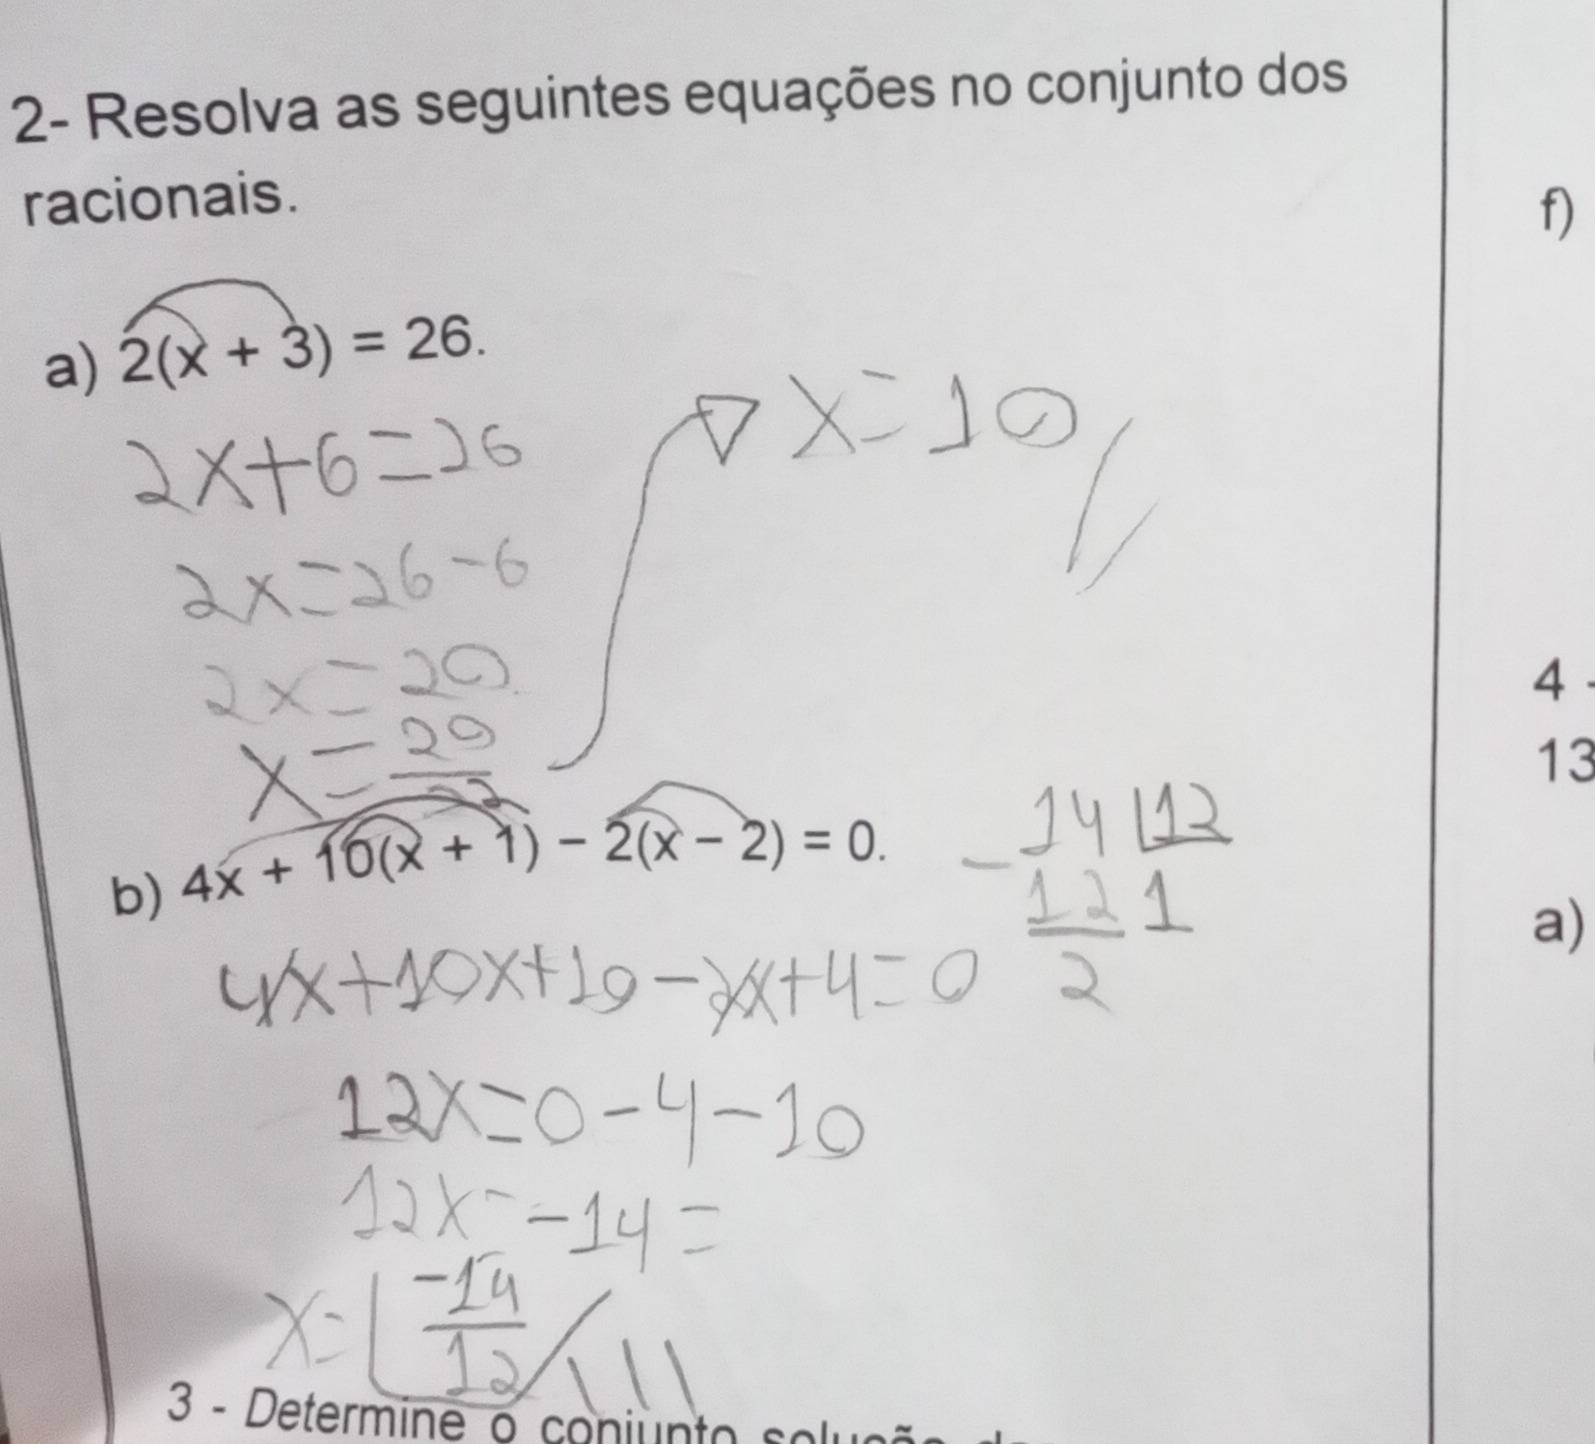 2- Resolva as seguintes equações no conjunto dos
racionais.
a) 2(x + 3) = 26.
2x+6=26
2x=26-6
2x=20
x=20/2
x=10
b) 4x + 10(x + 1) - 2(x - 2) = 0.
4x+10x+10-2x+4=0
12x=0-4-10
12x=-14=
x=-14/12
14 12
-12 1
2
3 - Determine o conjunto
f)
4 -
13
a)